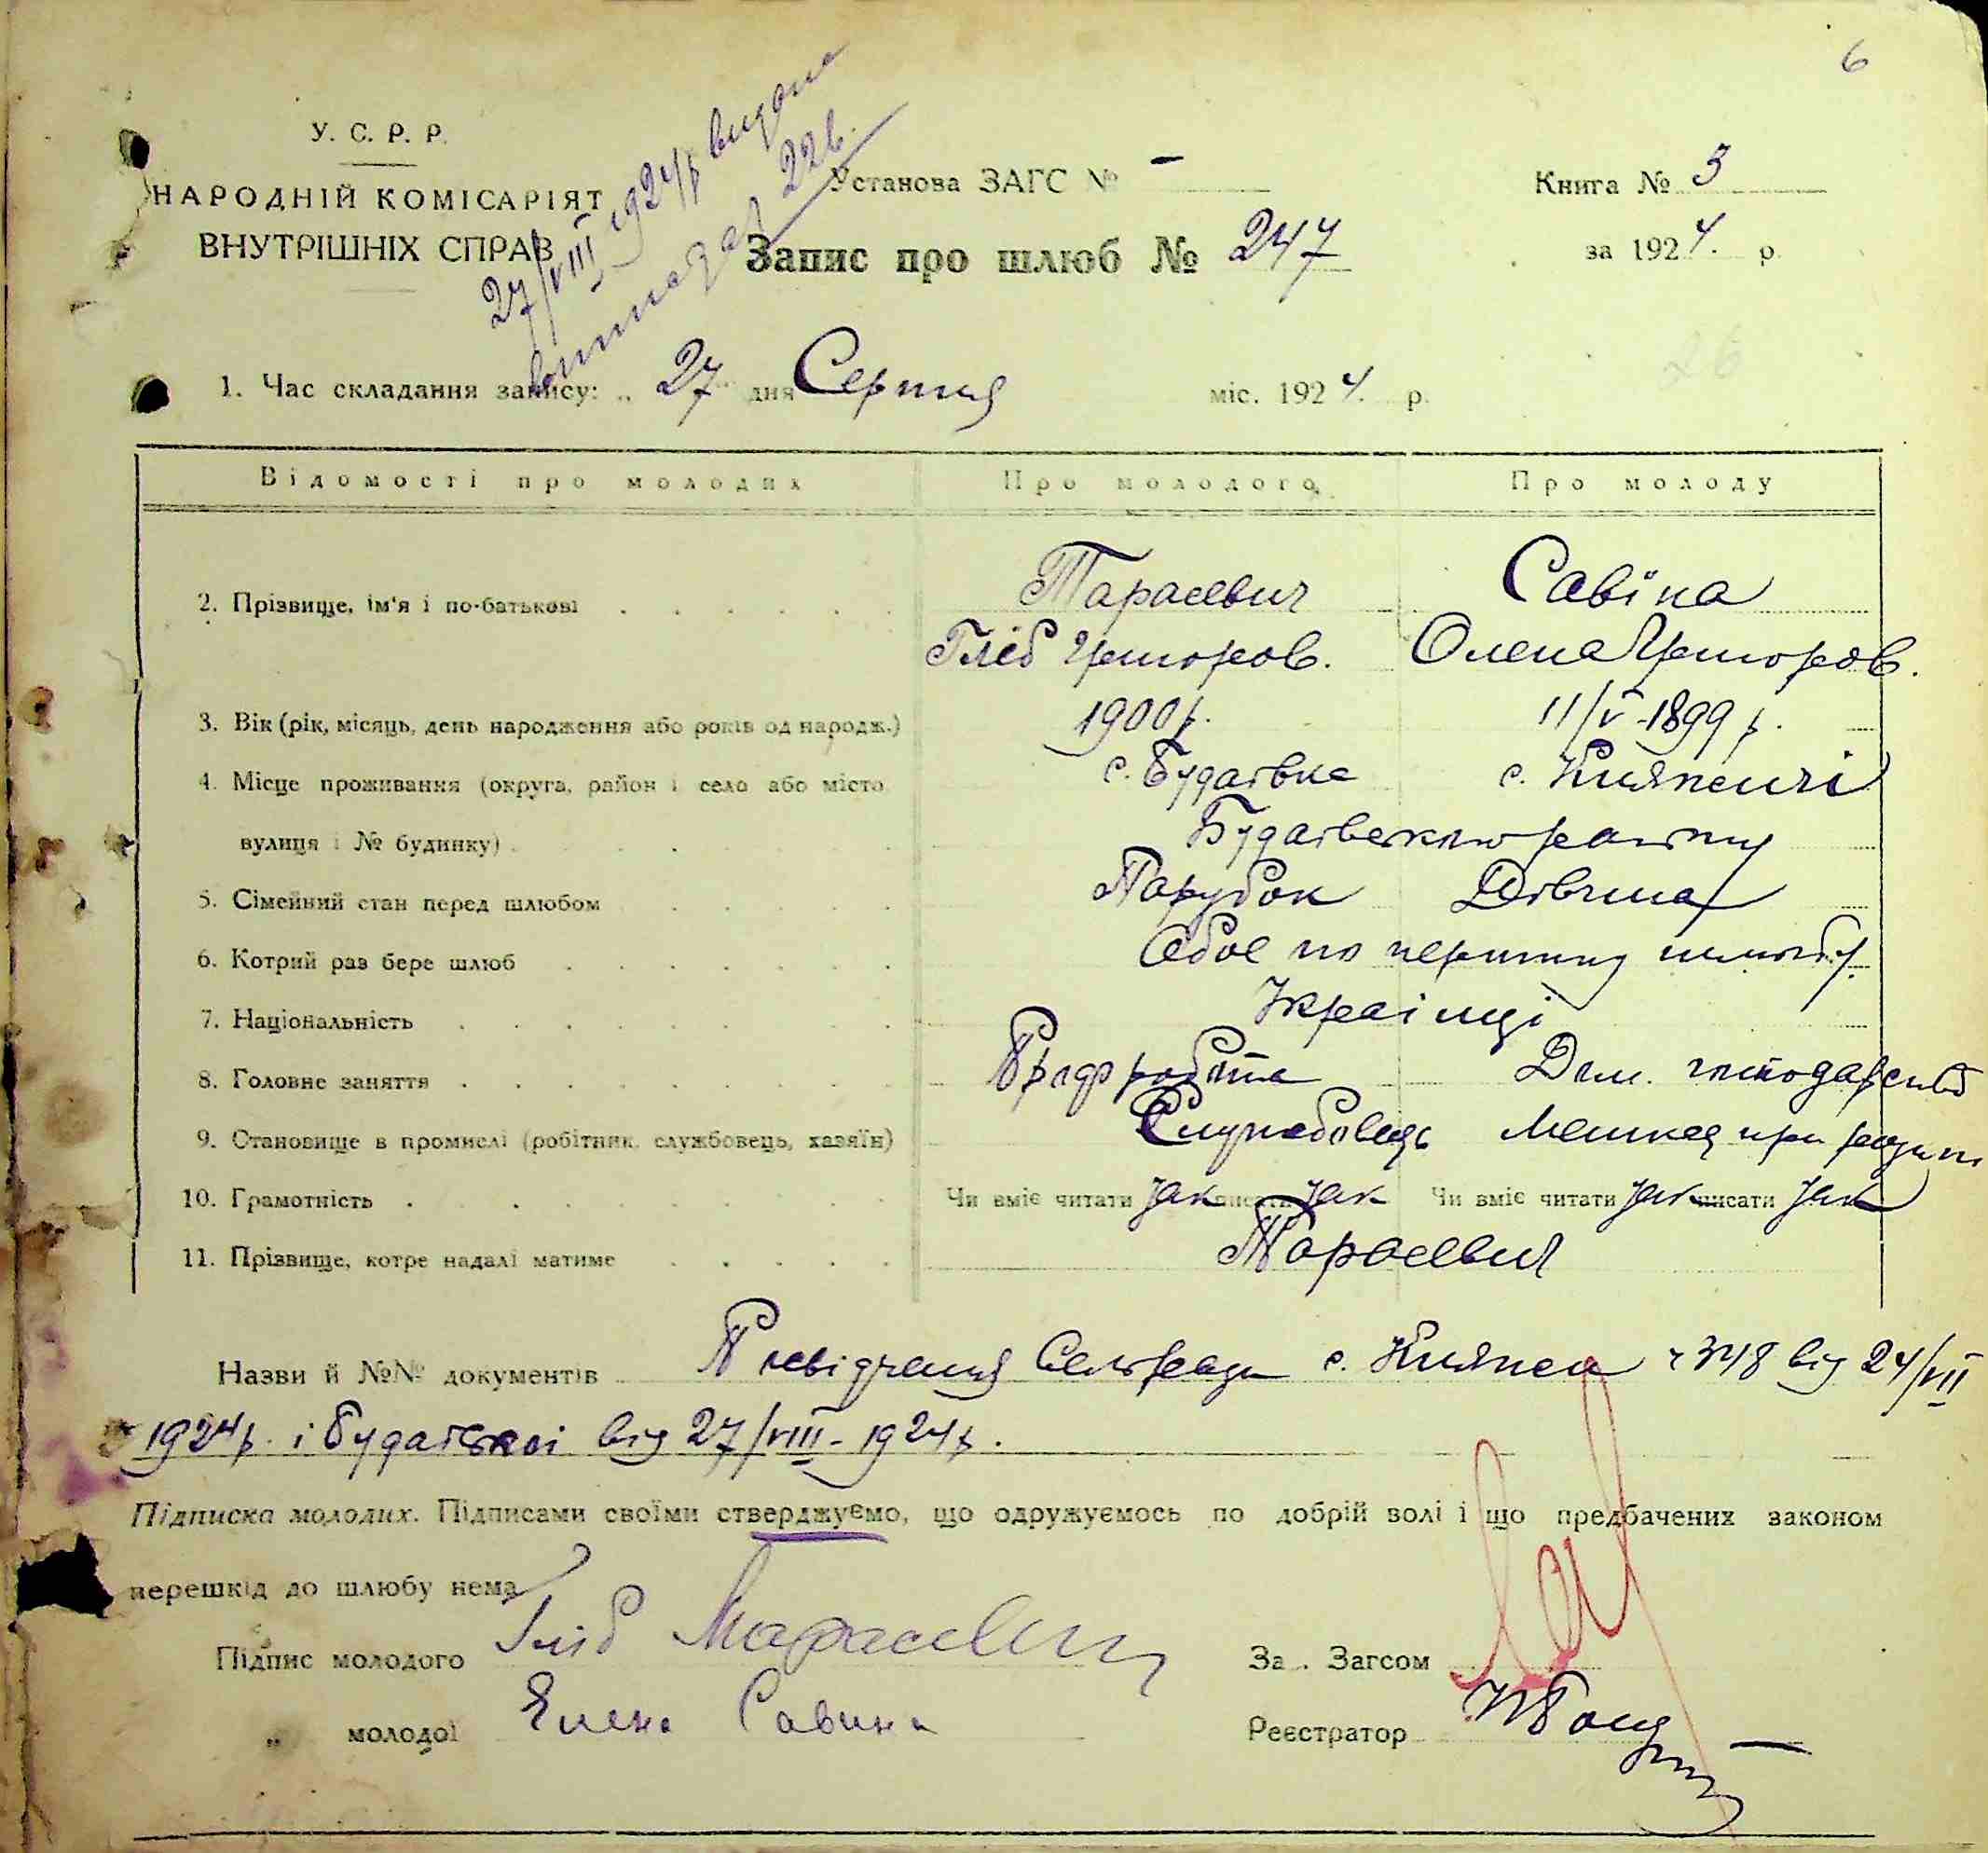 6
У. С. Р. Р.
НАРОДНІЙ КОМІСАРІЯТ
ВНУТРІШНІХ СПРАВ
27/VIII 1924 р видана
226.
Установа ЗАГС № –
Книга № 3
Запис про шлюб № 247
за 1924. р.
26
1. Час складання запису: „ 27 " дня Серпня міс. 1924. р.
Відомості про молодих Про молодого Про молоду
2. Прізвище, ім'я і по-батькові Тарасевич Савіна
Гліб Григоров. Олена Григоров.
3. Вік (рік, місяць, день народження або років од народж.) 1900 р. 11/V-1899 р.
4. Місце проживання (округа, район і село або місто с. Будаївка с. Княжичі
вулиця і № будинку) Будаївського району
5. Сімейний стан перед шлюбом Парубок Дівчина
6. Котрий раз бере шлюб Обоє по першому шлюбу.
7. Національність Українці
8. Головне заняття робота Дом. господарство
9. Становище в промислі (робітник, службовець, хазяїн) Службовець Мешкає при родині
10. Грамотність Чи вміє читати так писати так Чи вміє читати так писати так
11. Прізвище, котре надалі матиме Тарасевич
Назви й №№ документів Посвідчення Сельради с. Княжич ч 348 від 24/VII
1924 р. і Будаївської від 27/VIII-1924 р.
Підписка молодих. Підписами своїми стверджуємо, що одружуємось по добрій волі і що предбачених законом
перешкід до шлюбу нема
Підпис молодого Гліб Тарасевич За . Загсом
„ молодої Елена Савина Реєстратор